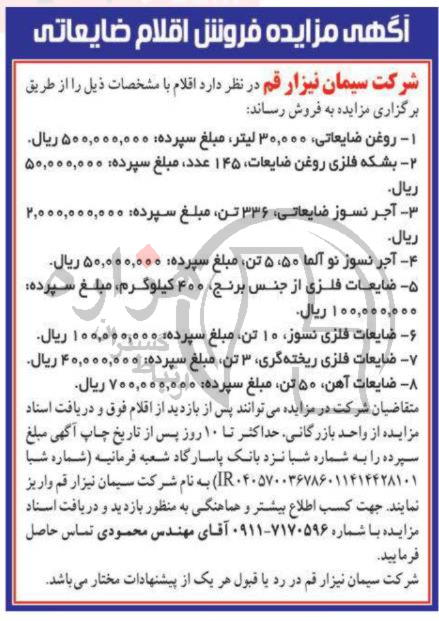 آگهی مزایده فروش اقلام ضایعاتی
شرکت سیمان نیزار قم در نظر دارد اقلام با مشخصات ذیل را از طریق
برگزاری مزایده به فروش رساند:
۱- روغن ضایعاتی، ۳۰,۰۰۰ لیتر، مبلغ سپرده: ۵۰۰,۰۰۰,۰۰۰ ریال.
۲- بشکه فلزی روغن ضایعات، ۱۴۵ عدد، مبلغ سپرده: ۵۰,۰۰۰,۰۰۰
ریال.
۳- آجر نسوز ضایعاتی، ۳۳۶ تن، مبلغ سپرده: ۲,۰۰۰,۰۰۰,۰۰۰
ریال.
۴- آجر نسوز نو آلما ۵۰، ۵ تن، مبلغ سپرده: ۵۰,۰۰۰,۰۰۰ ریال.
۵- ضایعات فلزی از جنس برنج، ۴۰۰ کیلوگرم، مبلغ سپرده:
۱۰۰,۰۰۰,۰۰۰ ریال.
۶- ضایعات فلزی نسوز، ۱۰ تن، مبلغ سپرده: ۱۰۰,۰۰۰,۰۰۰ ریال.
۷- ضایعات فلزی ریخته‌گری، ۳ تن، مبلغ سپرده: ۴۰,۰۰۰,۰۰۰ ریال.
۸- ضایعات آهن، ۵۰ تن، مبلغ سپرده: ۷۰۰,۰۰۰,۰۰۰ ریال.
متقاضیان شرکت در مزایده می‌توانند پس از بازدید از اقلام فوق و دریافت اسناد
مزایده از واحد بازرگانی، حداکثر تا ۱۰ روز پس از تاریخ چاپ آگهی مبلغ
سپرده را به شماره شبا نزد بانک پاسارگاد شعبه فرمانیه (شماره شبا
IR۰۴۰۵۷۰۰۳۶۷۸۶۰۱۱۴۱۴۴۲۸۱۰۱) به نام شرکت سیمان نیزار قم واریز
نمایند. جهت کسب اطلاع بیشتر و هماهنگی به منظور بازدید و دریافت اسناد
مزایده با شماره ۷۱۷۰۵۹۶-۰۹۱۱ آقای مهندس محمودی تماس حاصل
فرمایید.
شرکت سیمان نیزار قم در رد یا قبول هر یک از پیشنهادات مختار می‌باشد.